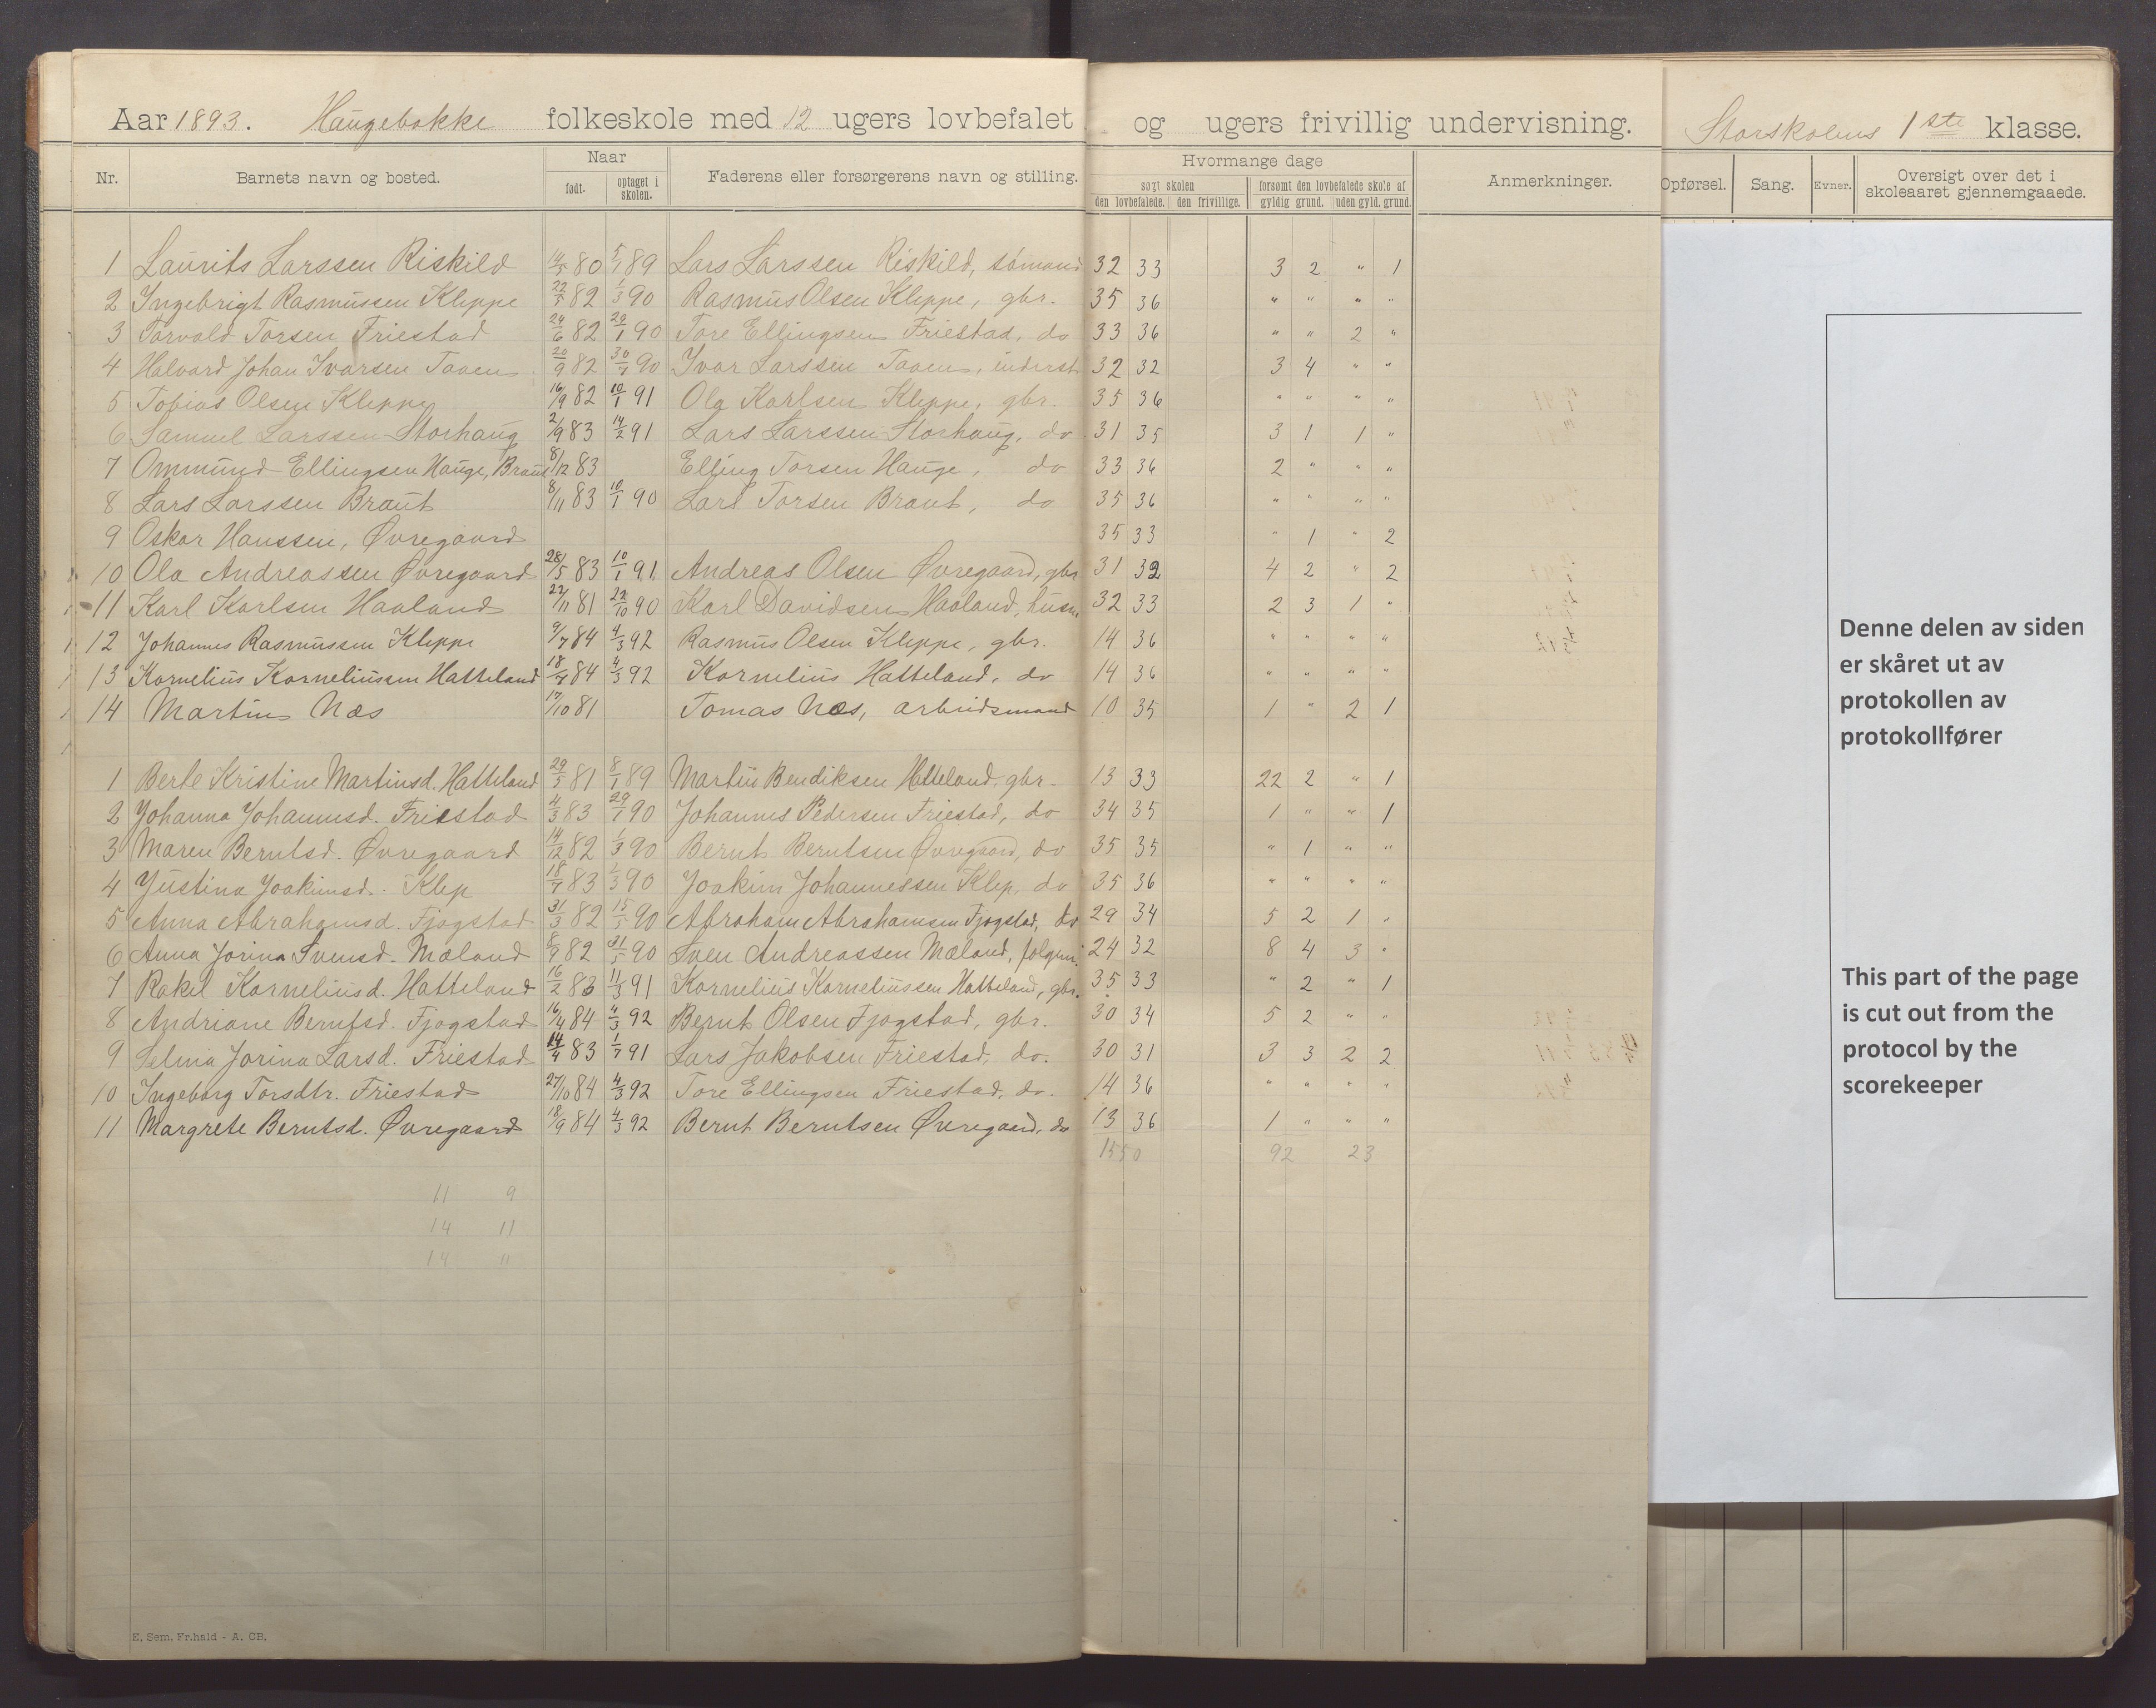 Aar 1893. Haugebakke folkeskole med 12 ugers lovbefalet og ugers frivillig undervisning. Storskolens 1ste klasse.
Nr. Barnets navn og bosted. Naar født. optaget i skolen. Faderens eller forsørgerens navn og stilling. Hvormange dage søgt skolen den lovbefalede. den frivillige. forsømt den lovbefalede skole af gyldig grund. uden gyld. grund. Anmerkninger. Opførsel. Sang. Evner. Oversigt over det i skoleaaret gjennemgaaede.
1 Laurits Larssen Riskild 14/5 80 5/1 89 Lars Larssen Riskild, sømand 32 33 3 2 " 1
2 Ingebrigt Rasmussen Kleppe 22/5 82 1/3 90 Rasmus Olsen Kleppe, gbr. 35 36 " " " "
3 Torvald Torsen Friestad 24/6 82 29/1 90 Tore Ellingsen Friestad, do 33 36 " " 2 "
4 Halvard Johan Ivarsen Taaen 20/9 82 30/7 90 Ivar Larssen Taaen, inderst 32 32 3 4 " "
5 Tobias Olsen Kleppe 16/9 82 10/1 91 Ola Karlsen Kleppe, gbr. 35 36 " " " "
6 Samuel Larssen Storhaug 2/9 83 14/2 91 Lars Larssen Storhaug, do 31 35 3 1 1 "
7 Ommund Ellingsen Hauge, Braut 8/12 83 Elling Torsen Hauge, do 33 36 2 " " "
8 Lars Larssen Braut 8/11 83 10/1 90 Lars Torsen Braut, do 35 36 " " " "
9 Oskar Hanssen, Øvregaard 35 33 " 1 " 2
10 Ola Andreassen Øvregaard 28/5 83 10/1 91 Andreas Olsen Øvregaard, gbr 31 32 4 2 " 2
11 Karl Karlsen Haaland 22/11 81 22/10 90 Karl Davidsen Haaland, husm. 32 33 2 3 1 "
12 Johannes Rasmussen Kleppe 9/7 84 4/3 92 Rasmus Olsen Kleppe, gbr. 14 36 " " " "
13 Kornelius Korneliussen Hatteland 18/4 84 4/3 92 Kornelius Hatteland, do 14 36 " " " "
14 Martin Næs 17/10 81 Tomas Næs, arbeidsmand 10 35 1 " 2 1
1 Berte Kristine Martinsd. Hatteland 29/5 81 8/1 89 Martin Bendiksen Hatteland, gbr. 13 33 22 2 " 1
2 Johanna Johannesd. Friestad 4/3 83 29/1 90 Johannes Pedersen Friestad, do 34 35 1 " " 1
3 Maren Berntsd. Øvregaard 14/12 82 1/3 90 Bernt Berntsen Øvregaard, do 35 35 " 1 " "
4 Justina Joakimsd. Klep 18/7 83 1/3 90 Joakim Johannessen Klep, do 35 36 " " " "
5 Anna Abrahamsd. Fjogstad 31/3 82 15/5 90 Abraham Abrahamsen Fjogstad, do 29 34 5 2 1 "
6 Anna Jorina Svensd. Mæland 8/9 82 31/5 90 Sven Andreassen Mæland, folgem. 24 32 8 4 3 "
7 Rakel Korneliusd. Hatteland 16/2 83 11/3 91 Kornelius Korneliussen Hatteland, gbr. 35 33 " 2 " 1
8 Andriane Berntsd. Fjogstad 16/4 84 4/3 92 Bernt Olsen Fjogstad, gbr. 30 34 5 2 " "
9 Selma Jorina Larsd. Friestad 14/4 83 1/7 91 Lars Jakobsen Friestad, do. 30 31 3 3 2 2
10 Ingeborg Torsdtr. Friestad 27/10 84 4/3 92 Tore Ellingsen Friestad, do. 14 36 " " " "
11 Margrete Berntsd. Øvregaard 18/9 84 4/3 92 Bernt Berntsen Øvregaard, do 13 36 1 " " "
1550 92 23
11 9
14 11
14 11
E. Sem. Fr.hald - A. CB.
Denne delen av siden
er skåret ut av
protokollen av
protokollfører
This part of the page
is cut out from the
protocol by the
scorekeeper